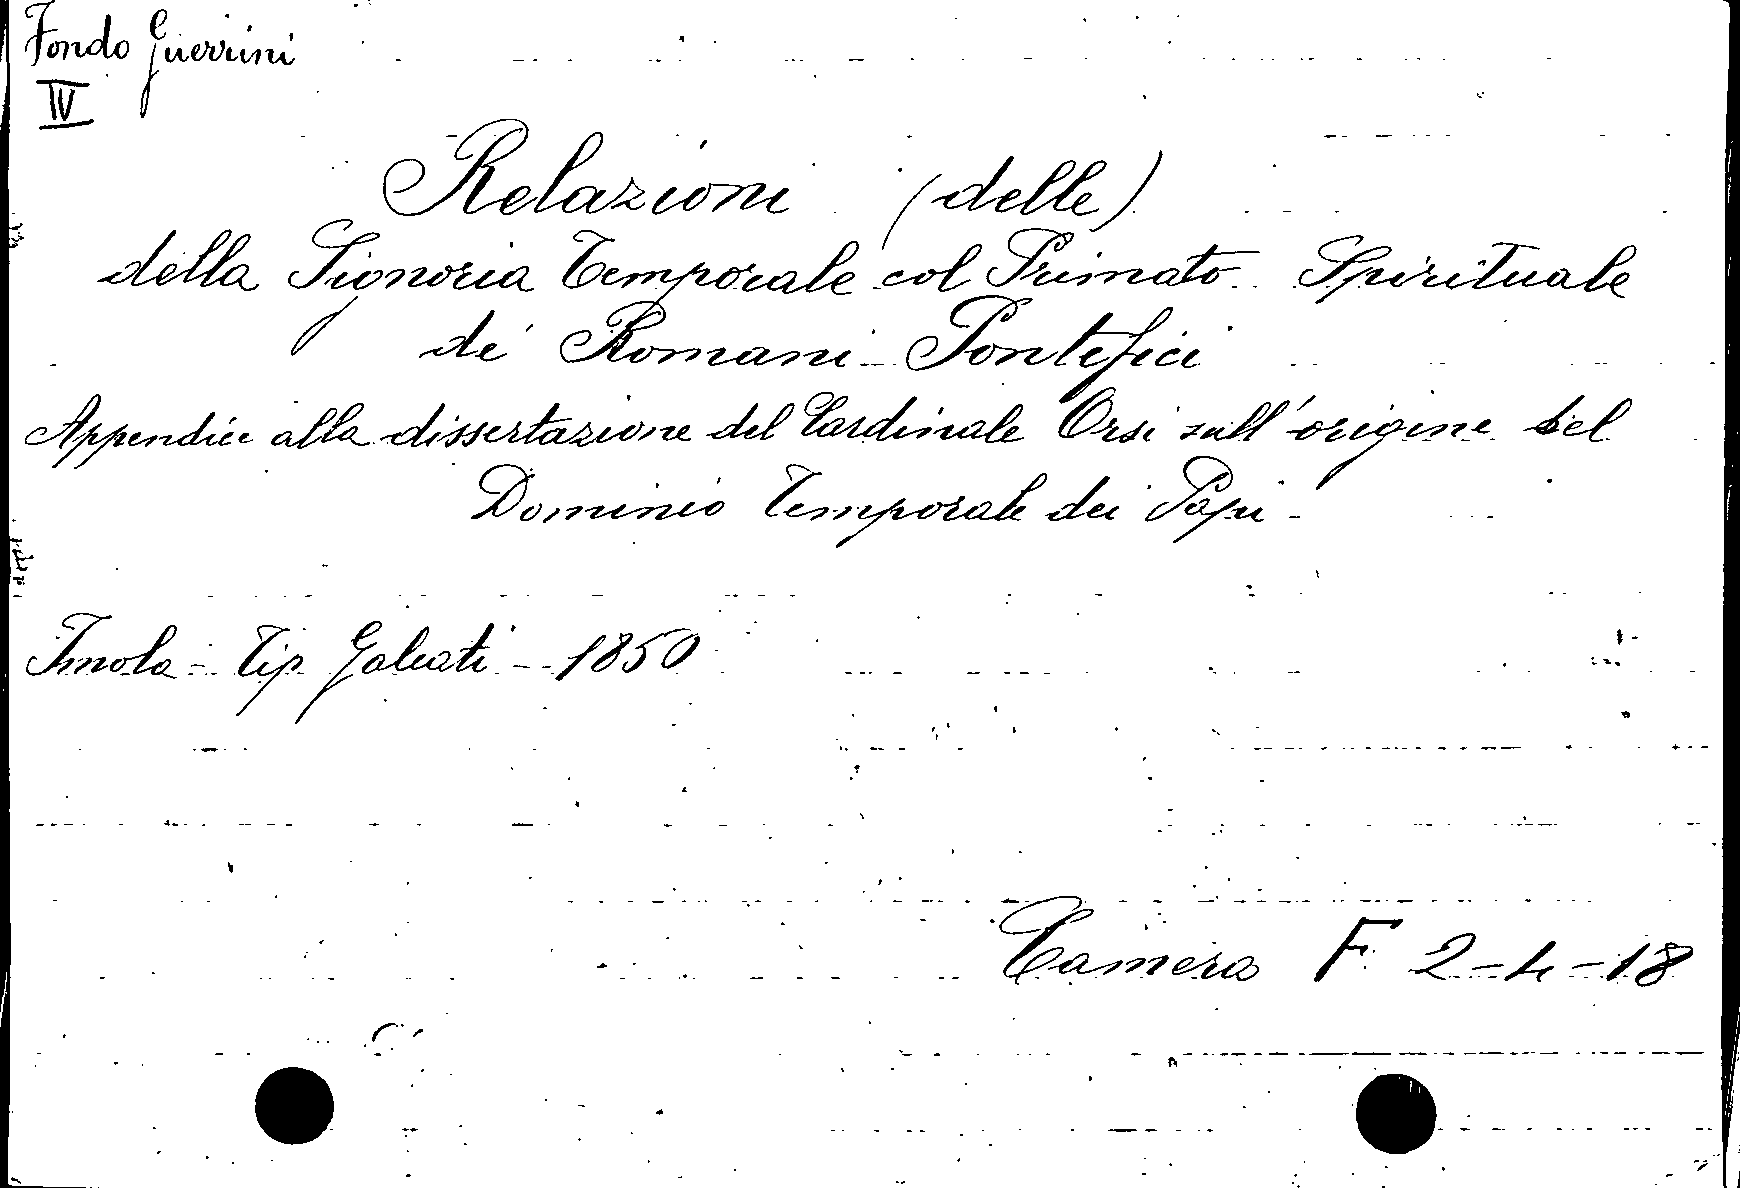 Fondo Guerrini
IV
Relazioni (delle)
della Signoria Temporale col Primato Spirituale
de' Romani Pontefici
Appendice alla dissertazione del Cardinale Orsi sull'origine del
Dominio Temporale dei Papi -
Imola - Tip Galeati - 1850
Camera F 2-4-18